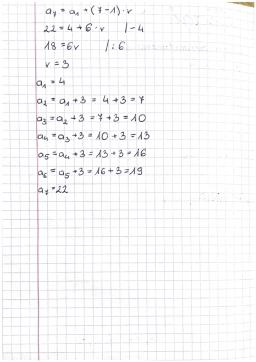 a₇ = a₁ + (7-1)·r
22 = 4 + 6·r |-4
18 = 6r |:6
r = 3
a₁ = 4
a₂ = a₁ + 3 = 4 + 3 = 7
a₃ = a₂ + 3 = 7 + 3 = 10
a₄ = a₃ + 3 = 10 + 3 = 13
a₅ = a₄ + 3 = 13 + 3 = 16
a₆ = a₅ + 3 = 16 + 3 = 19
a₇ = 22